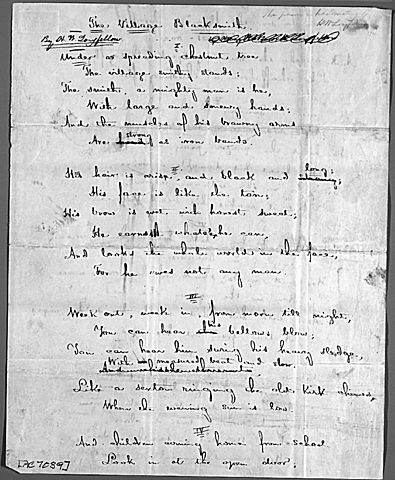 The Village Blacksmith
By H. W. Longfellow
I
Under a spreading chestnut tree
The village smithy stands;
The smith, a mighty man is he,
With large and sinewy hands;
And the muscles of his brawny arms
strong
Are hard as iron bands.
II
His hair is crisp, and black and long;
His face is like the tan;
His brow is wet with honest sweat;
He earns whate'er he can
And looks the whole world in the face,
For he owes not any man.
III
Week out, week in, from morn till night,
You can hear his bellows blow;
You can hear him swing his heavy sledge,
With measured beat and slow
Like a sexton ringing the old kirk chimes,
When the evening sun is low
IV
And children coming home from school
Look in at the open door;
[AC7089]